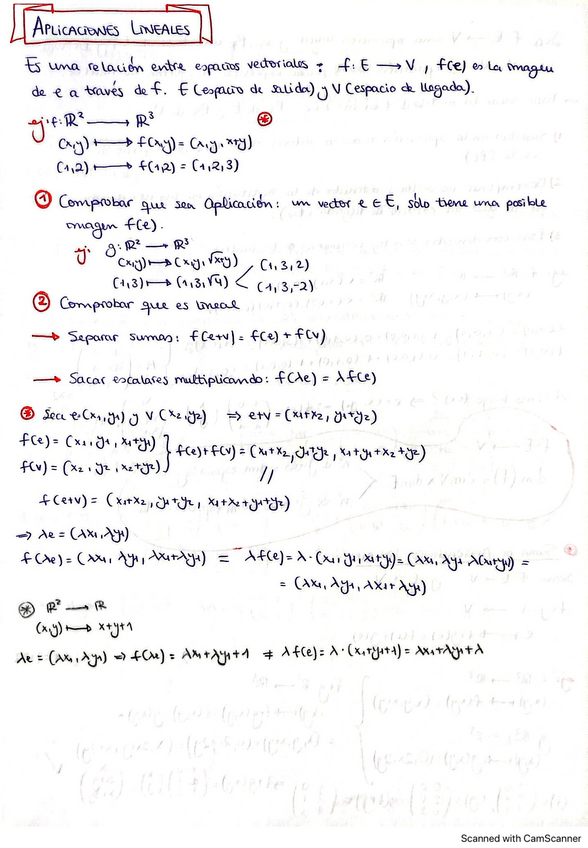 APLICACIONES LINEALES
Es una relación entre espacios vectoriales: f: E → V, f(e) es la imagen
de e a través de f. E (espacio de salida) y V (espacio de llegada).
ej: f: ℝ² → ℝ³ *
(x,y) ↦ f(x,y) = (x, y, x+y)
(1,2) ↦ f(1,2) = (1,2,3)
① Comprobar que sea Aplicación: un vector e ∈ E, sólo tiene una posible
imagen f(e).
ej: g: ℝ² → ℝ³
(x,y) ↦ (x,y,√x+y) (1,3,2)
(1,3) ↦ (1,3,√4) < (1,3,-2)
② Comprobar que es lineal
→ Separar sumas: f(e+v) = f(e) + f(v)
→ Sacar escalares multiplicando: f(λe) = λf(e)
* Sea e(x₁,y₁) y V(x₂,y₂) ⇒ e+v = (x₁+x₂, y₁+y₂)
f(e) = (x₁, y₁, x₁+y₁) } f(e)+f(v) = (x₁+x₂, y₁+y₂, x₁+y₁+x₂+y₂)
f(v) = (x₂, y₂, x₂+y₂) //
f(e+v) = (x₁+x₂, y₁+y₂, x₁+x₂+y₁+y₂)
⇒ λe = (λx₁, λy₁)
f(λe) = (λx₁, λy₁, λx₁+λy₁) = λf(e) = λ·(x₁, y₁, x₁+y₁) = (λx₁, λy₁, λ(x₁+y₁)) =
= (λx₁, λy₁, λx₁+λy₁)
* ℝ² → ℝ
(x,y) ↦ x+y+1
λe = (λx₁, λy₁) ⇒ f(λe) = λx₁+λy₁+1 ≠ λf(e) = λ·(x₁+y₁+1) = λx₁+λy₁+λ
Scanned with CamScanner